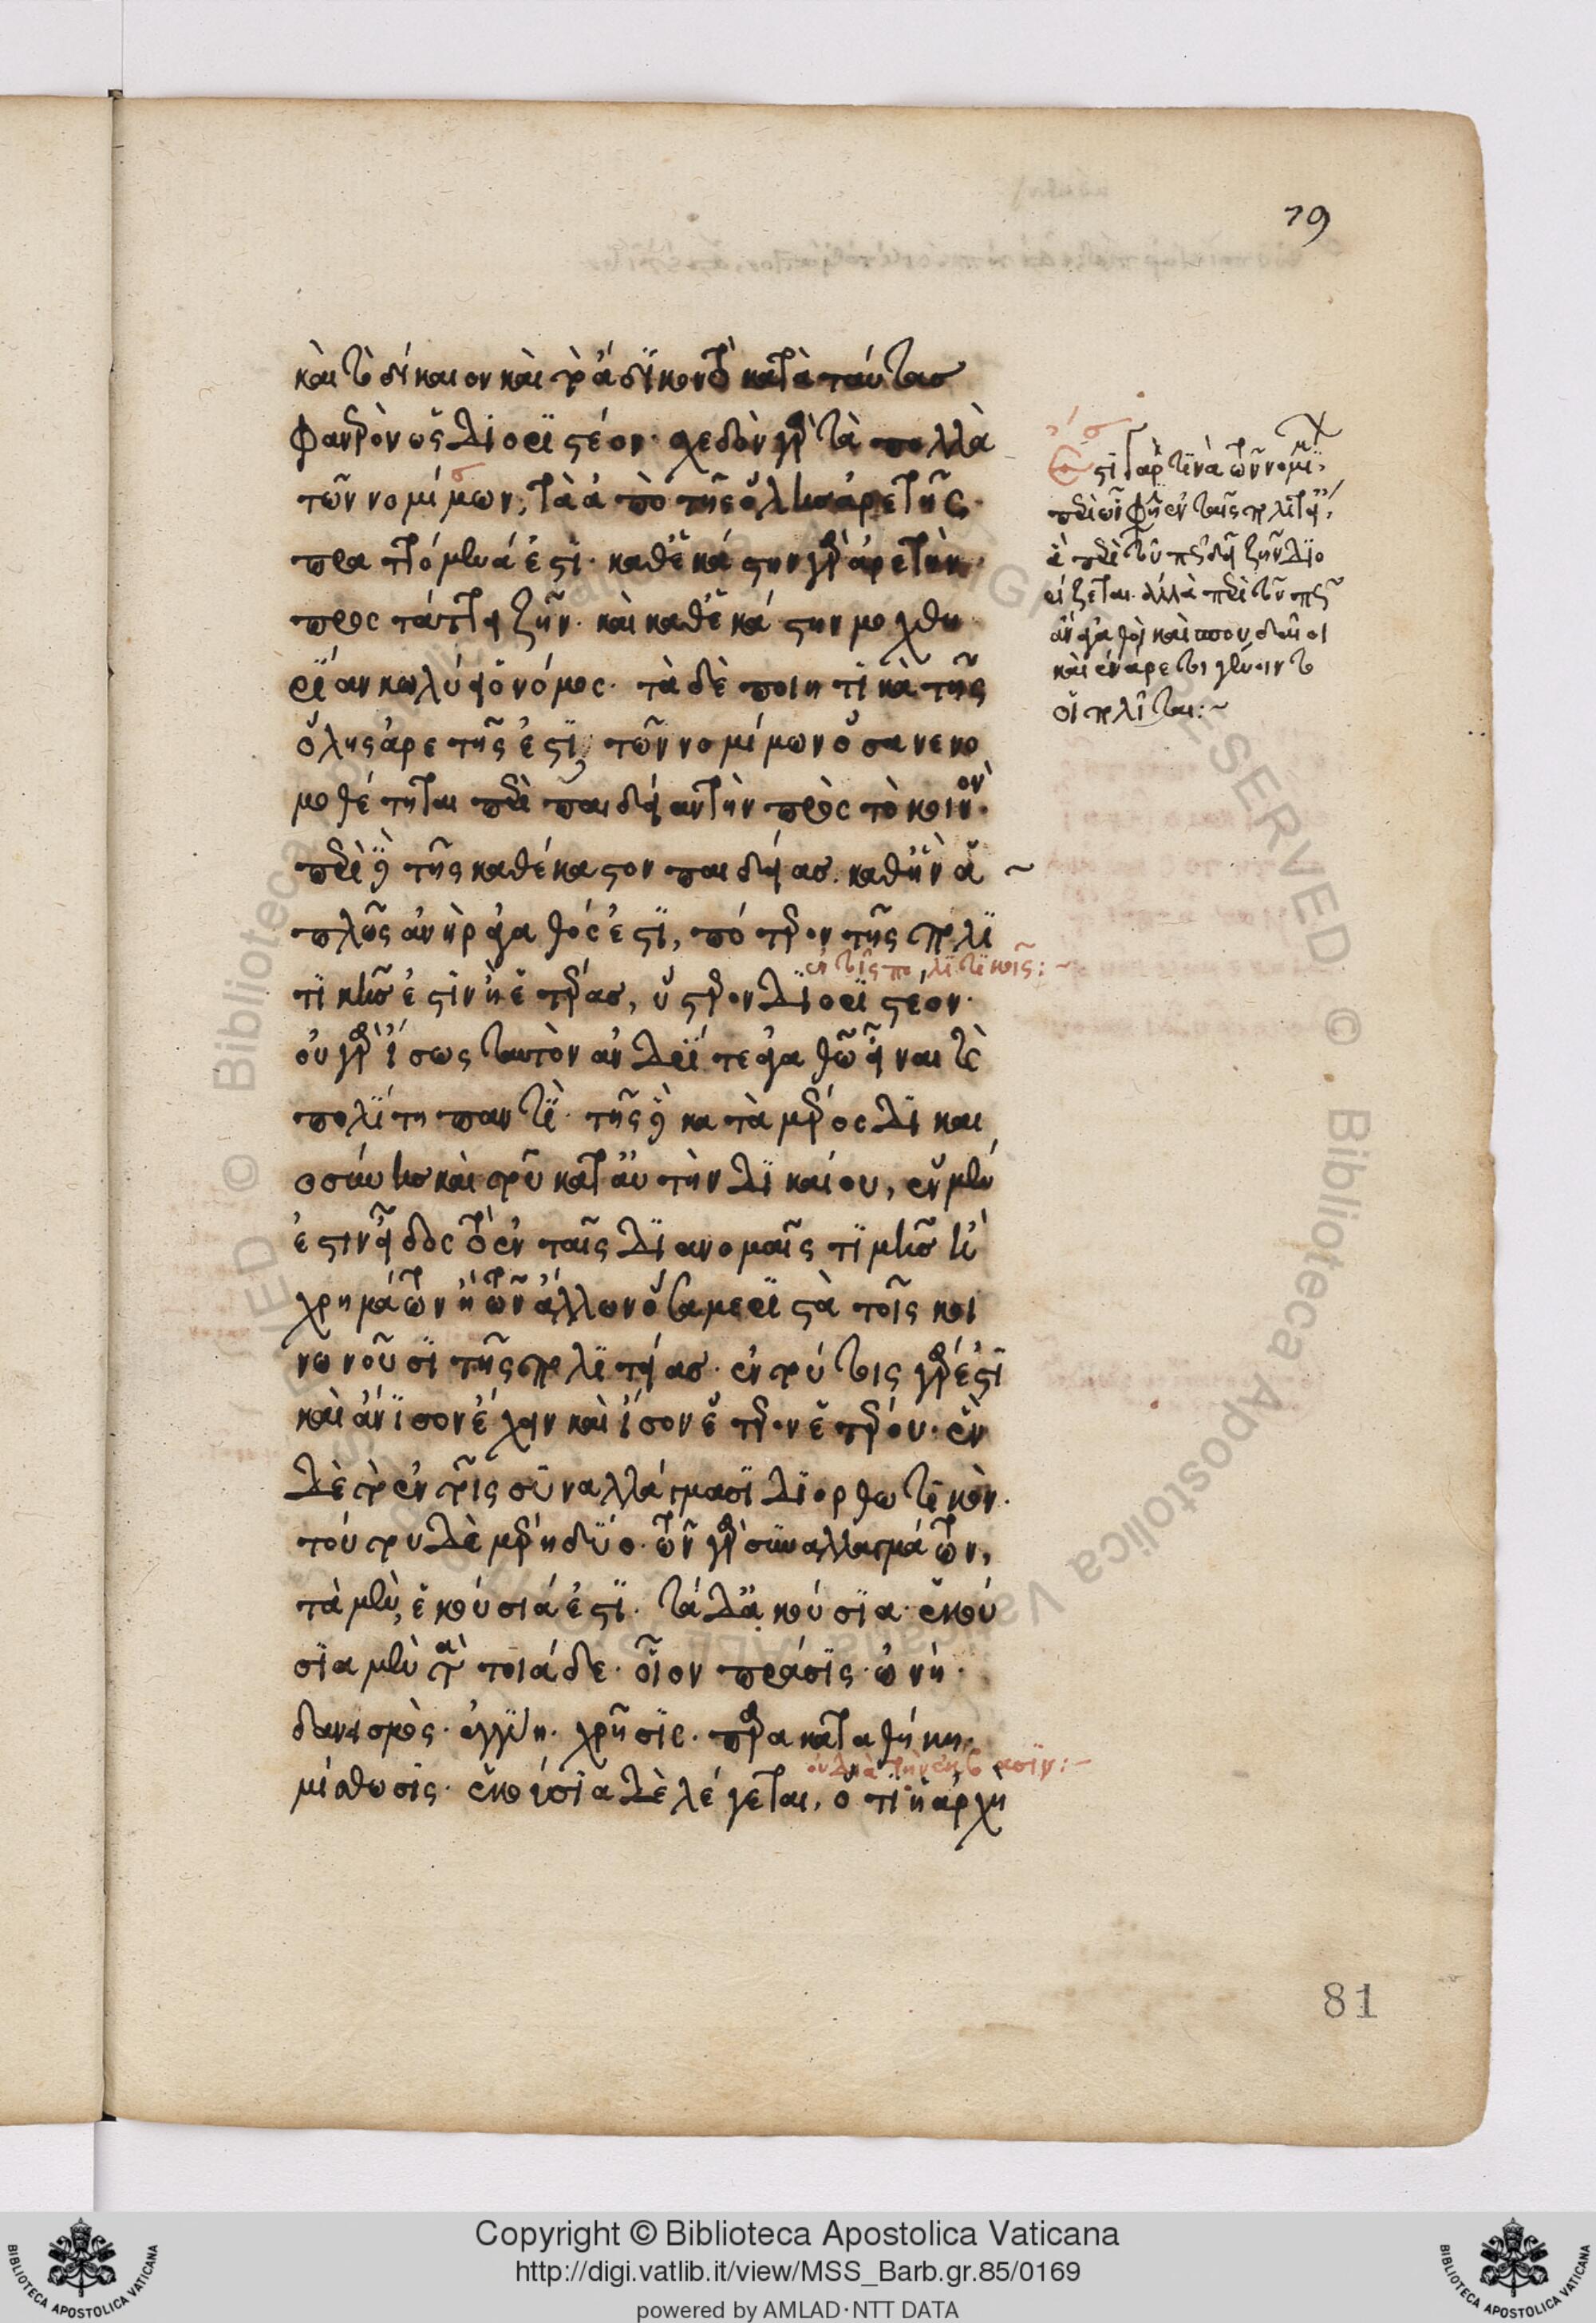 79
καὶ τὸ δίκαιον καὶ τὸ ἄδικον τὸ κατὰ ταύτας
φανερὸν ὡς διοριστέον· σχεδὸν γὰρ τὰ πολλὰ
τῶν νομίμων, τὰ ἀπὸ τῆς ὅλης ἀρετῆς
πραττόμενά ἐστι· καθ' ἑκάστην γὰρ ἀρετὴν
προστάττει ζῆν· καὶ καθ' ἑκάστην μοχθη
ρίαν κωλύει ὁ νόμος· τὰ δὲ ποιητικὰ τῆς
ὅλης ἀρετῆς ἐστὶ, τῶν νομίμων ὅσα νενο
μοθέτηται περὶ παιδείαν τὴν πρὸς τὸ κοινόν·
περὶ δὲ τῆς καθέκαστον παιδείας· καθ' ἣν ἁ
πλῶς ἀνὴρ ἀγαθός ἐστι, πότερον τῆς πολι
ἐν τοῖς πολιτικοῖς:~
τικῆς ἐστὶν ἢ ἑτέρας, ὕστερον διοριστέον·
οὐ γὰρ ἴσως ταυτὸν ἀνδρί τε ἀγαθῷ εἶναι καὶ
πολίτῃ παντί· τῆς δὲ κατὰ μέρος δικαι
οσύνης καὶ τοῦ κατ' αὐτὴν δικαίου, ἓν μέν
ἐστιν εἶδος τὸ ἐν ταῖς διανομαῖς τιμῆς ἢ
χρημάτων ἢ τῶν ἄλλων ὅσα μεριστὰ τοῖς κοι
νωνοῦσι τῆς πολιτείας· ἐν τούτοις γὰρ ἐστὶ
καὶ ἄνισον ἔχειν καὶ ἴσον ἕτερον ἑτέρου· ἓν
δὲ τὸ ἐν τοῖς συναλλάγμασι διορθωτικόν·
τούτου δὲ μέρη δύο· τῶν γὰρ συναλλαγμάτων,
τὰ μὲν, ἑκούσιά ἐστι· τὰ δ' ἀκούσια· ἑκού
σια μὲν τὰ τοιάδε· οἷον πρᾶσις· ὠνή·
δανεισμὸς· ἐγγύη· χρῆσις· παρακαταθήκη·
μίσθωσις· ἑκούσια δὲ λέγεται, ὅτι ἡ ἀρχὴ
Ἔστι γὰρ τινὰ τῶν νομίμων
περὶ ὧν φησὶν ἐν ταῖς πολιτείαις
οἱ πολῖται:~
81
Copyright © Biblioteca Apostolica Vaticana
http://digi.vatlib.it/view/MSS_Barb.gr.85/0169
powered by AMLAD·NTT DATA